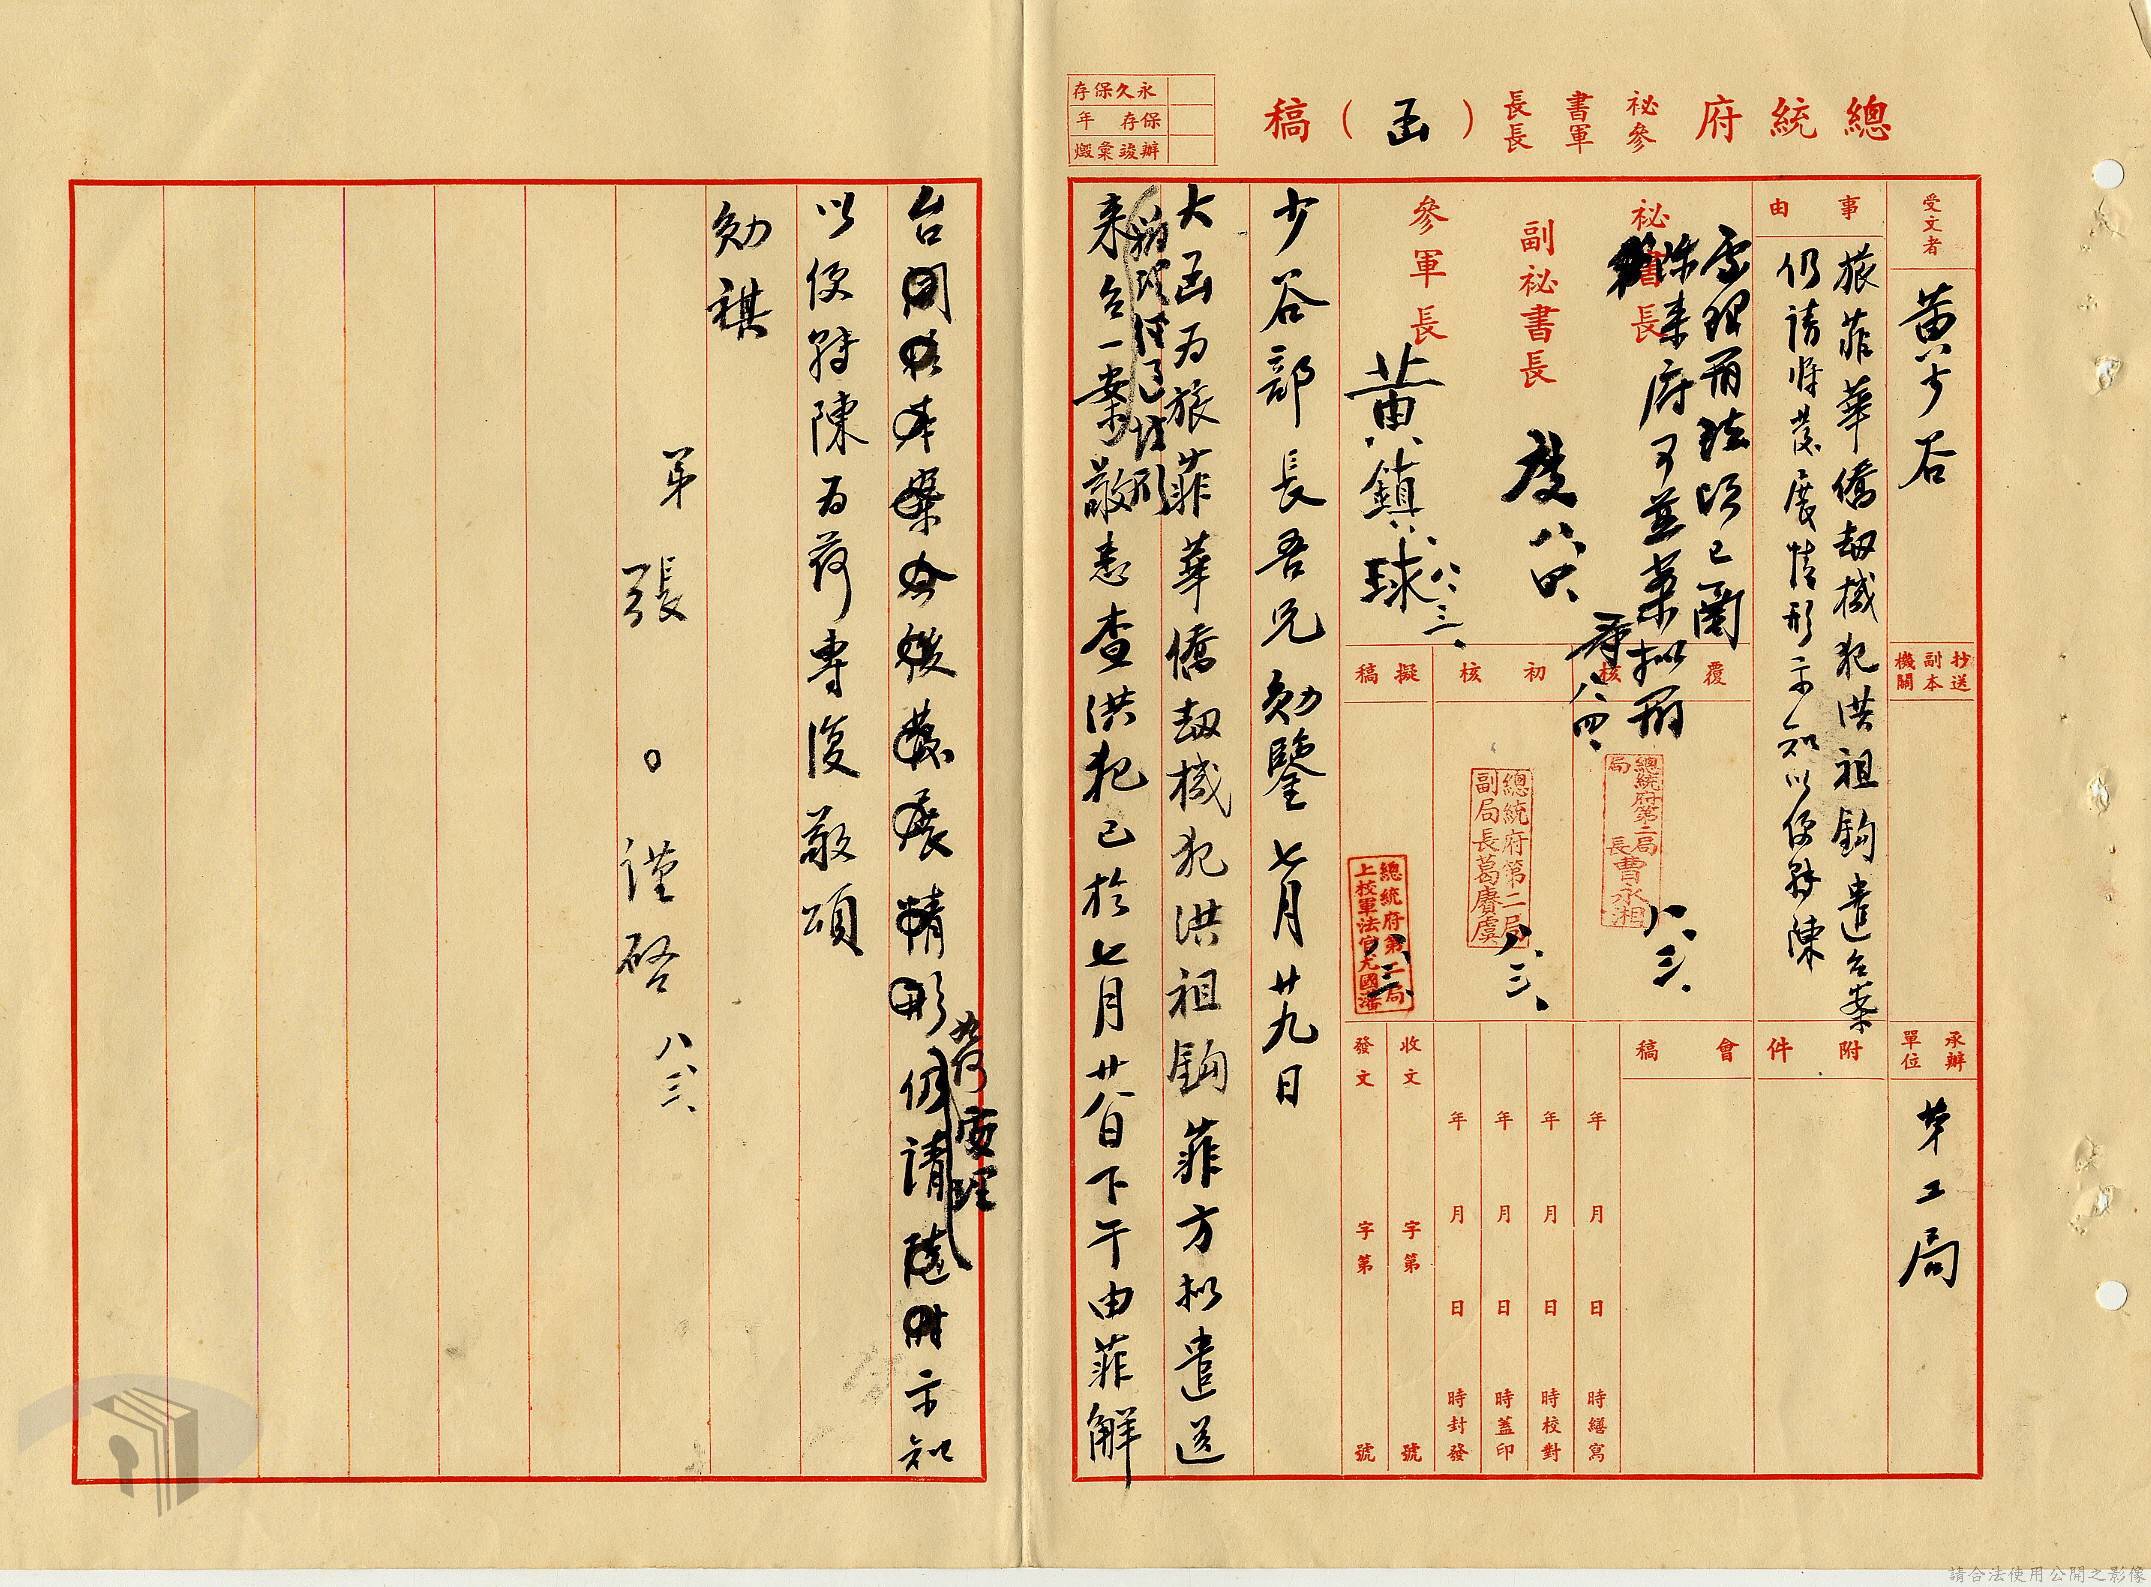 總統府祕書長參軍長(函)稿
永久保存
保存 年
辦竣彙燬
受文者
黃少谷
抄送副本機關
承辦單位
第二局
事由
旅菲華僑劫機犯洪祖鈎遣台案
仍請將發展情形示知以便轉陳
附件
祕書長
處理辦法項已閱
來府可並案拟辦
八、四、
副祕書長
八、四、
參軍長
黃鎮球
八、三、
覆核
初核
擬稿
總統府第二局
局長曹永湘
八、三、
總統府第二局
副局長葛賡虞
八、三、
總統府第二局
上校軍法官尤國藩
八、三、
會稿
年月日時繕寫
年月日時校對
年月日時蓋印
年月日時封發
收文 字第 號
發文 字第 號
少谷部長吾兄勛鑒七月廿九日
大函为旅菲華僑劫機犯洪祖鈎菲方拟遣送
來台一案
敬悉查洪犯已於七月廿八日下午由菲解
台關於本案今後發展情形仍請隨時示知
處理
以便轉陳为荷專復敬頌
勛祺
弟張○謹啓
八、三、
請合法使用公開之影像